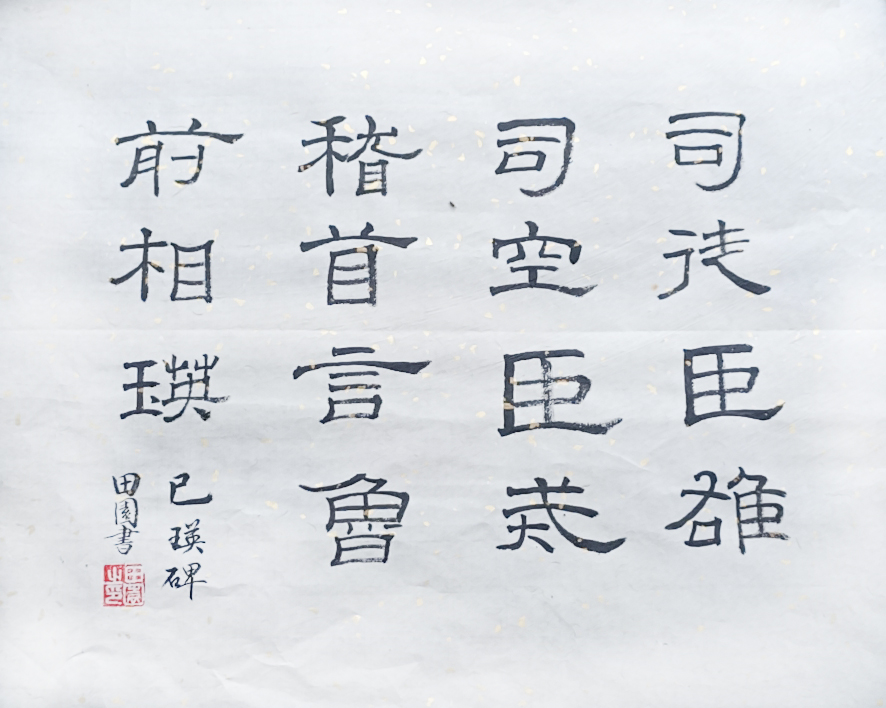 司徒臣雄
司空臣戒
稽首言魯
前相瑛
已瑛碑
田園書
田園之印